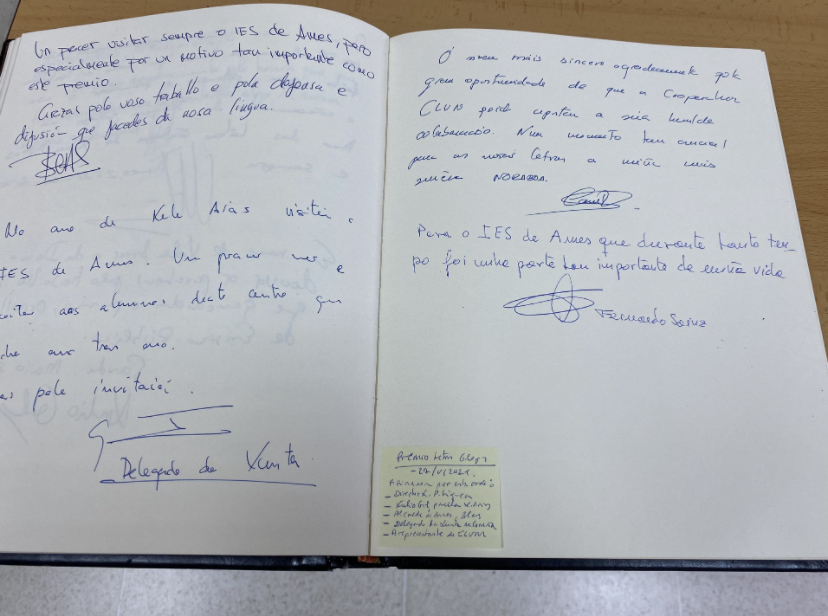 Un pracer visitar sempre o IES de Ames, pero
especialmente por un motivo tan importante como
este premio.
Grazas polo voso traballo e pola defensa e
difusión que facedes da nosa lingua.
No ano de Xela Arias visitei o
IES de Ames. Un pracer ver e
aos alumnos deste centro que
ano tras ano.
pola invitación.
Delegado da Xunta
O meu máis sincero agradecemento pola
gran oportunidade de que a Cooperativa
CLUN poida aportar a súa humilde
colaboración. Nun momento tan crucial
para as nosas letras a miña máis
sincera NORABOA.
Para o IES de Ames que durante tanto tem-
po foi unha parte tan importante da miña vida
Fernando Sainz
Premio Letra
Asinaron por esta orde:
- Director
- Xulio
- Alcalde de Ames, Blas
- Delegado da Xunta
- A representante de CLUN